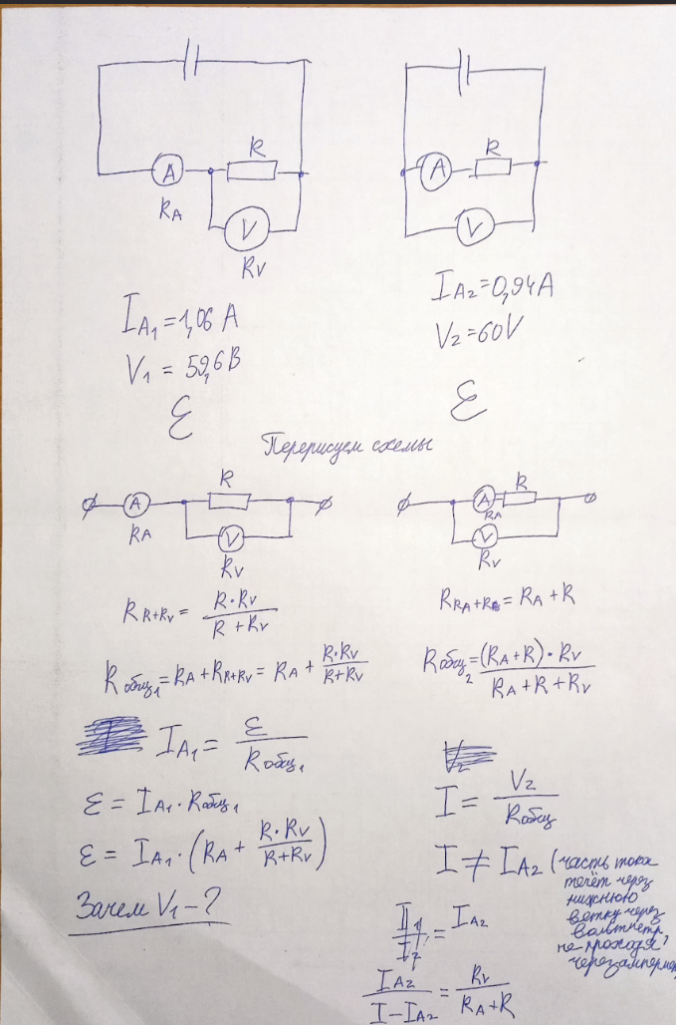 R
A
R_A
V
R_V
R
A
V
I_A1 = 1,06 A
V_1 = 59,6 В
ℰ
I_A2 = 0,94 A
V_2 = 60V
ℰ
Перерисуем схемы
R
A
R_A
V
R_V
R
A
R_A
V
R_V
R_R+RV = R·R_V / R + R_V
R_общ1 = R_A + R_R+RV = R_A + R·R_V / R+R_V
R_RA+R = R_A + R
R_общ2 = (R_A + R)·R_V / R_A + R + R_V
I_A1 = ℰ / R_общ1
ℰ = I_A1 · R_общ1
ℰ = I_A1 · (R_A + R·R_V / R+R_V)
Зачем V_1 - ?
V_2
I = V_2 / R_общ
I ≠ I_A2 (часть тока
течёт через
нижнюю
ветку через
вольтметр,
не проходя
через
= I_A2
I_A2 / I - I_A2 = R_V / R_A + R